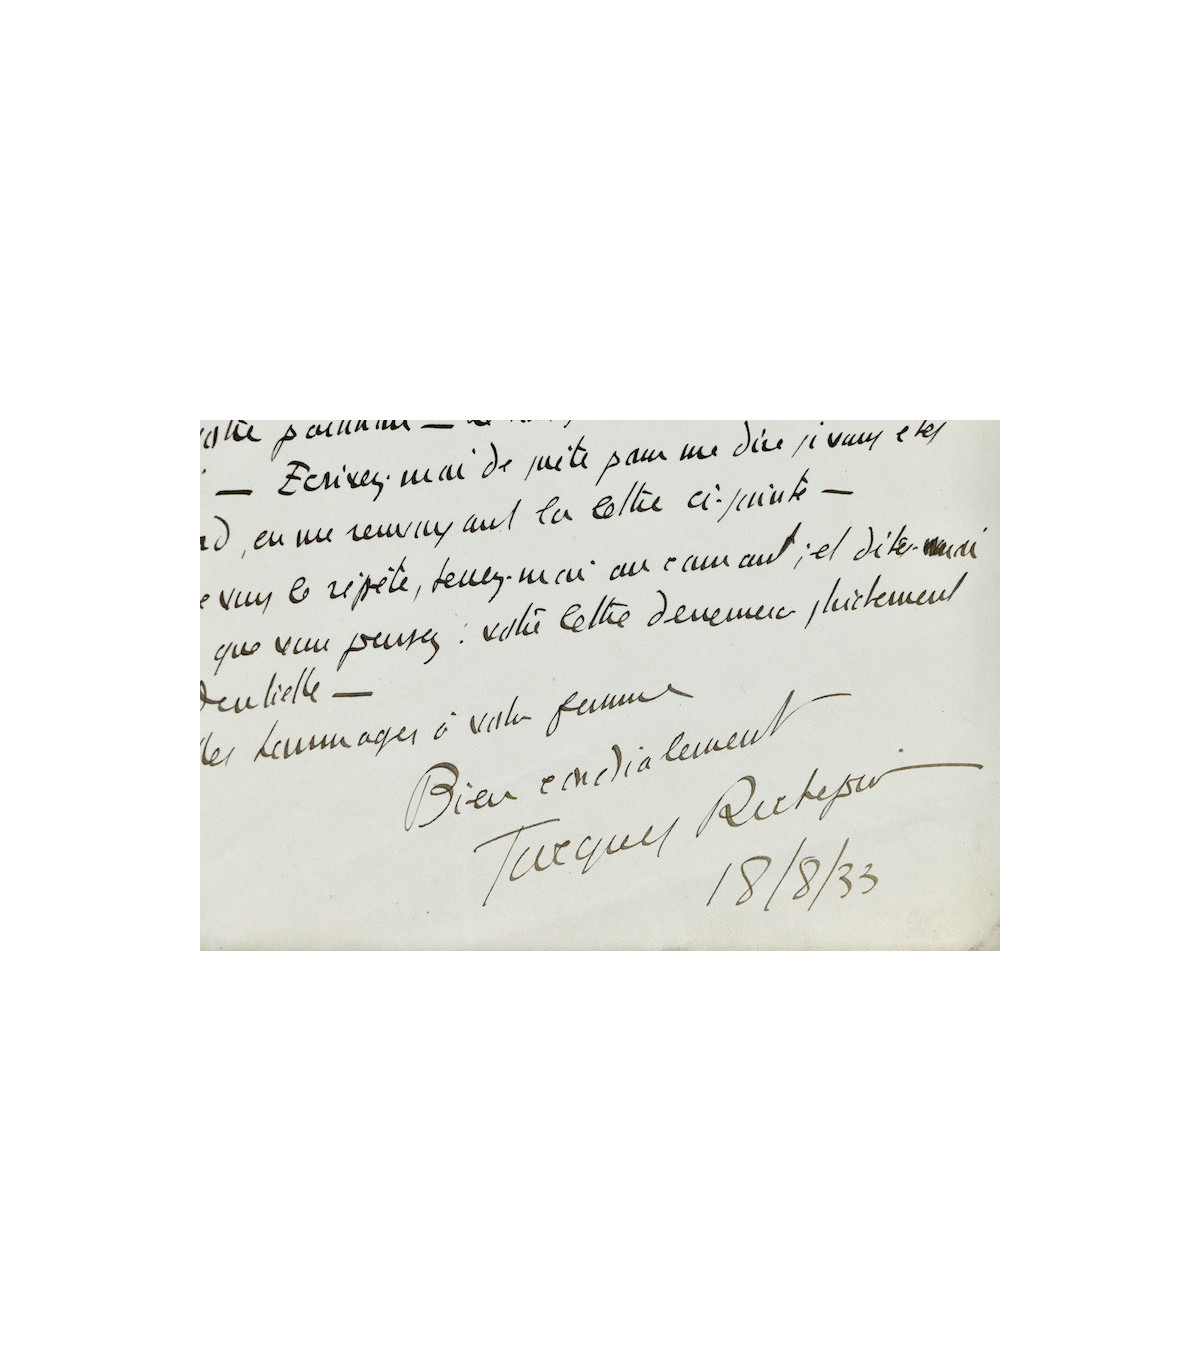 votre
— Ecrivez-moi de suite pour me dire si vous etes
en me renvoyant la lettre ci-jointe —
vous le répète, tenez-moi au courant ; et dites-moi
que vous pensez : votre lettre demeurera strictement
dentielle —
des hommages à votre femme
Bien cordialement
Jacques Richepin
18/8/33